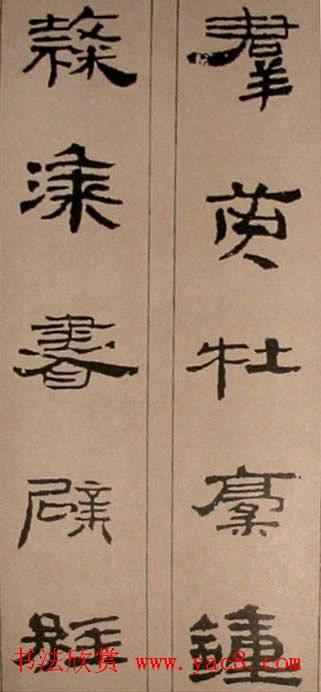 羣英杜稾鍾
隸漆書壁經
书法欣赏 www.yac8.com